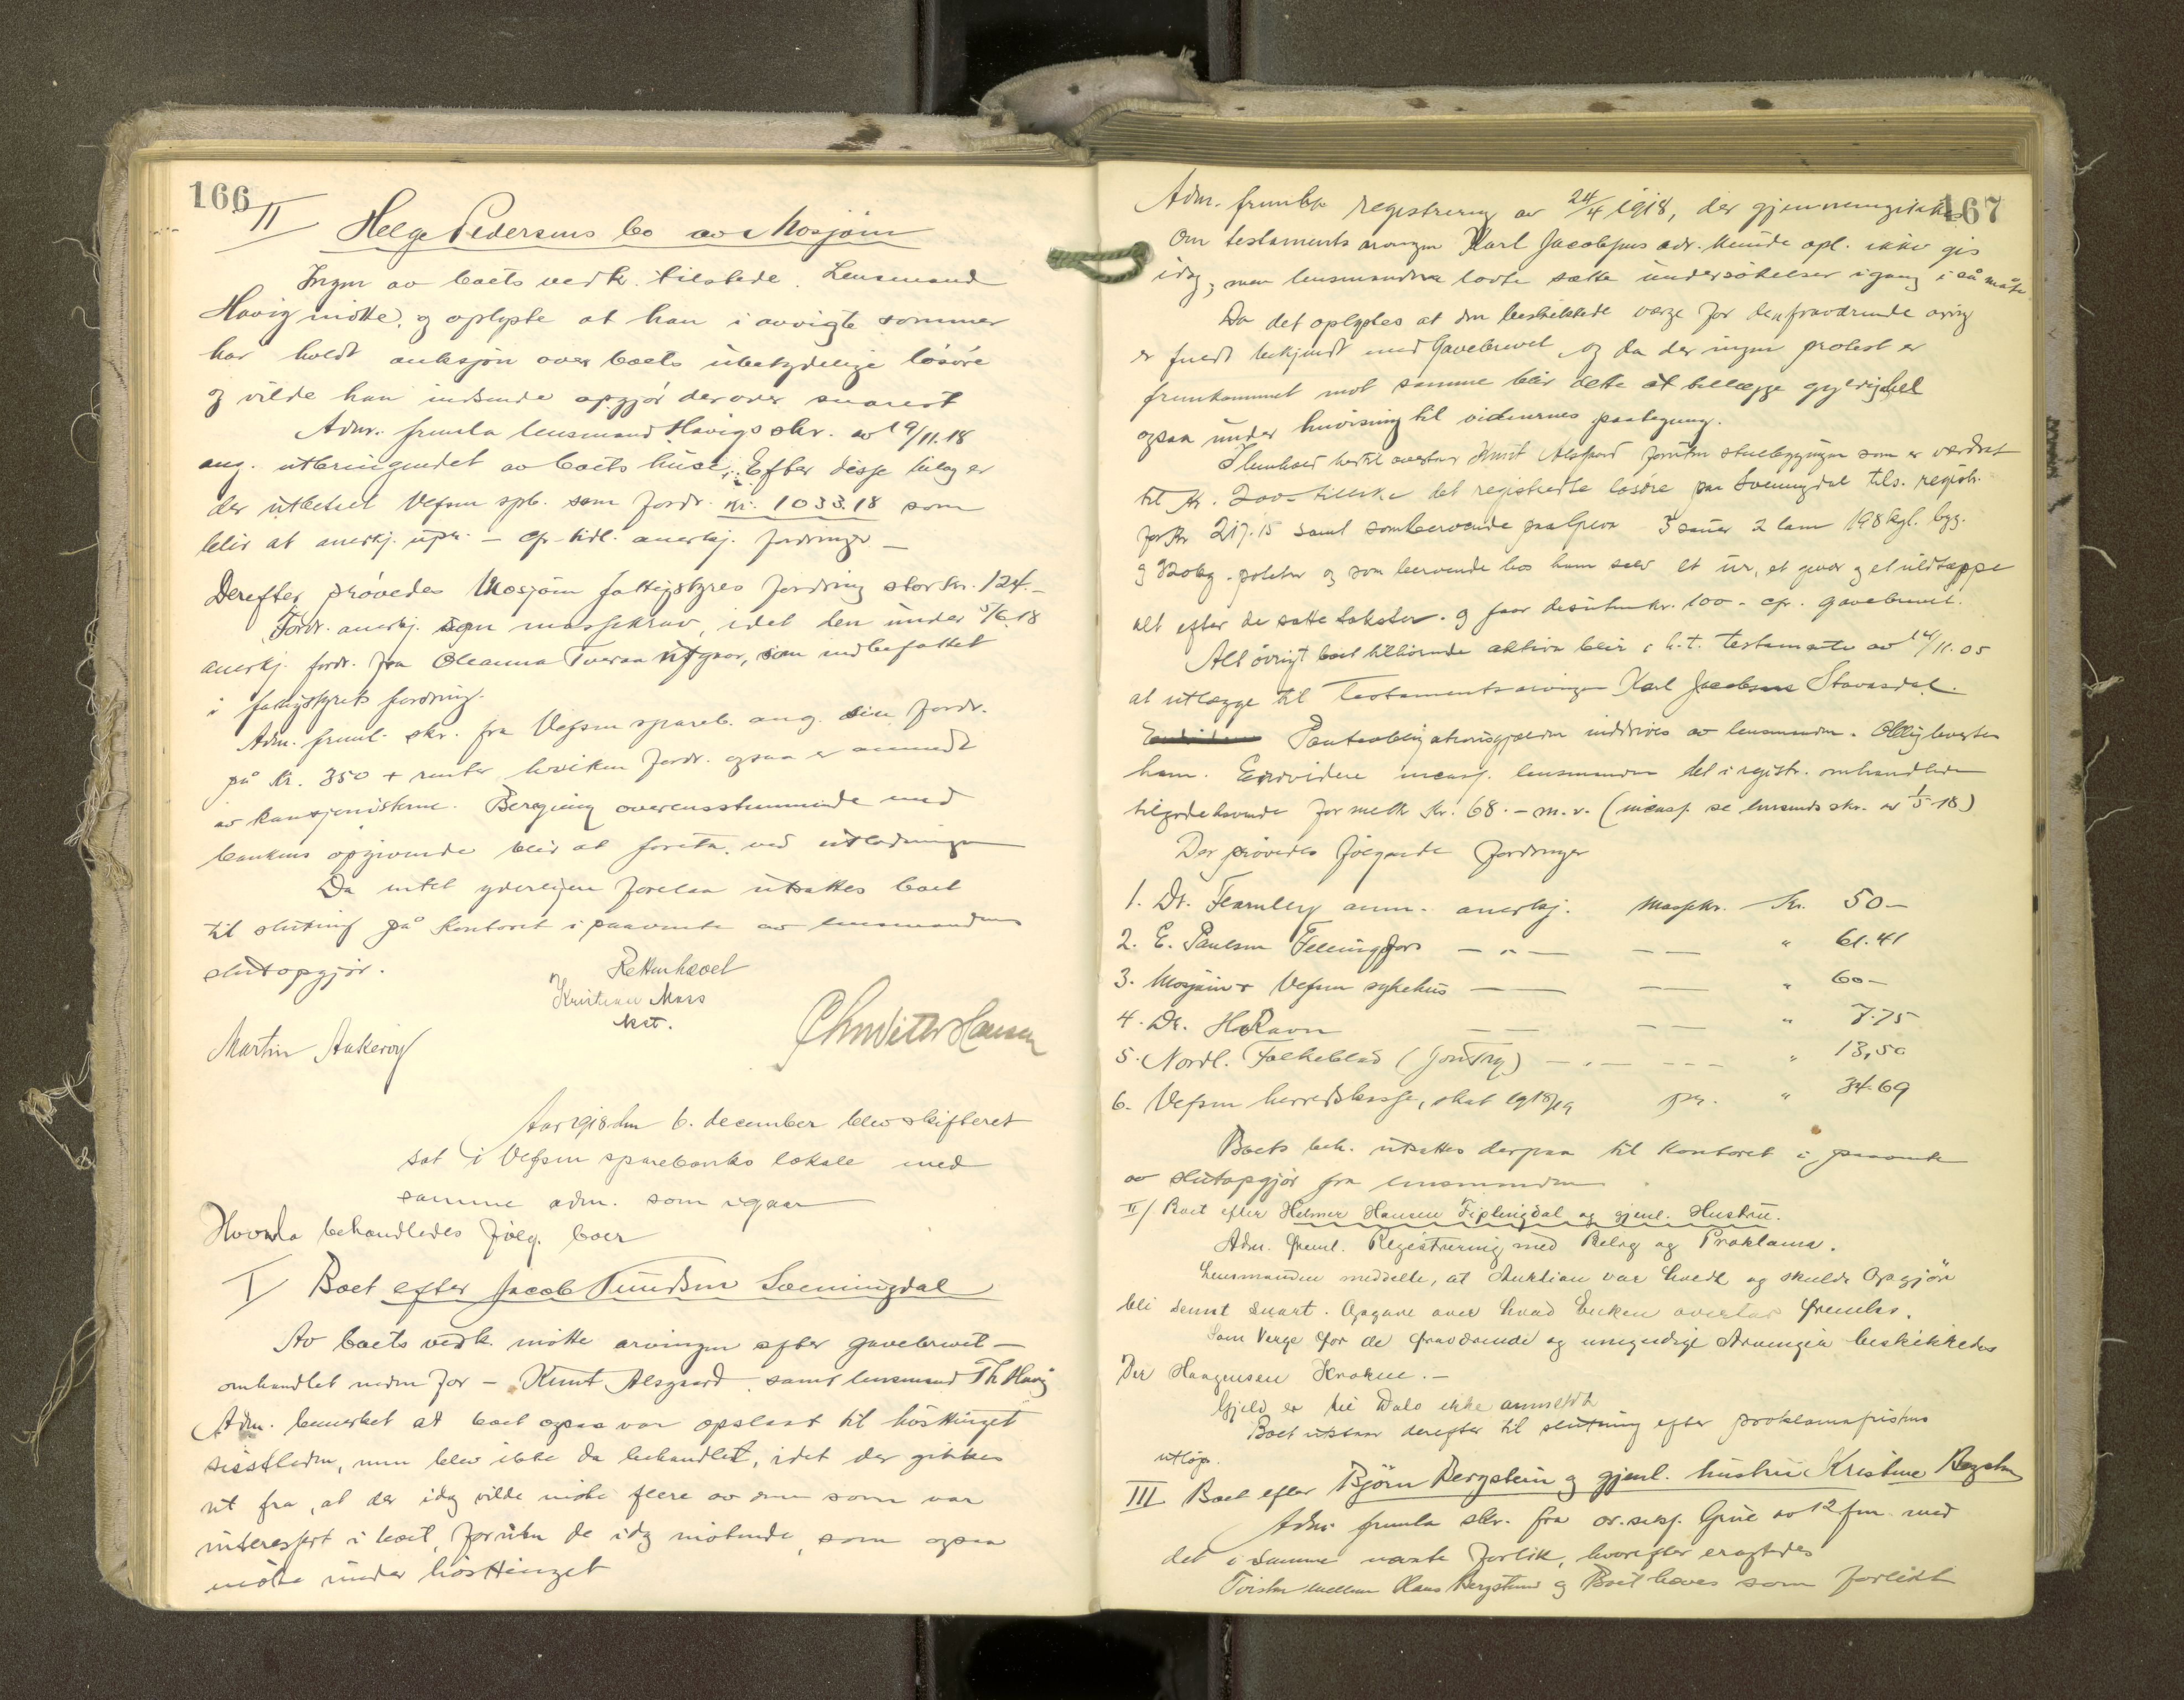 166
II Helge Pedersens bo av Mosjøen
Ingen av boets vedk. tilstede. Lensmand
Havig møtte, og oplyste at han i avvigte sommer
har holdt auksjon over boets ubetydelige løsøre
og vilde han indsende opgjør derover snarest
Adm. fremla lensmand Havigs skr. av 19/11.18
ang. utbringendet av boets huse. Efter disse bilag er
der utbetalt Vefsn spb. som fordr. kr. 1033.18 som
blir at anerkj. upr. – cfr tidl. anerkj. fordringer –
Derefter prøvedes Mosjøen fattigstyres fordring stor kr. 124.–
Fordr. anerkj. som massekrav, idet den under 5/6.18
anerkj. fordr. fra Oleanna Tveraa utgaar, som indbefattet
i fattigstyrets fordring.
Adm. freml. skr. fra Vefsn spareb. ang. sin fordr.
på kr. 350 + renter hvilken fordr. ogsaa er anmeldt
av kausjonisterne. Beregning overensstemmende med
bankens opgivende blir at foreta ved utlodningen
Da intet yderligere forelaa utsattes boet
til slutning på kontoret i paavente av lensmandens
slutopgjør.
Retten hævet
Kristian Moss
kst.
Martin Aakerøy
Chr Wetter Hansen
Aar 1918 den 6. december blev skifteret
sat i Vefsn sparebanks lokale med
samme adm. som igaar
Hvorda behandledes følg. boer
I Boet efter Jacob Knudsen Svenningdal
Av boets vedk. møtte arvingen efter gavebrevet –
omhandlet neden for – Knut Alsgaard samt lensmand Th Havig
Adm. bemerket at boet ogsaa var opslaat til høsttinget
sisstleden, men blev ikke da behandlet, idet der gikkes
ut fra, at der idag vilde møte flere av dem som var
interessert i boet, foruten de idag møtende, som ogsaa
møtte under høsttinget
167
Adm. fremla registrering av 24/4 1918, der gjennemgikkes
Om testaments arvingen Karl Jacobsens adr. kunde opl. ikke gis
idag, men lensmanden lovte sætte undersøkelser igang i så måte
Da det oplystes at den beskikkede værge for den fraværende arving
er fuldt bekjendt med gavebrevet, og da der ingen protest er
fremkommet mot samme blir dette at tillægge gyldighet
ogsaa under henvisning til vidnernes paategning.
I henhold hertil overtar Knut Alsgaard foruten stuebygningen som er værdsat
til kr. 200– tillike det registrerte løsøre paa Svenningdal tils. registr.
for kr 217.15 samt som beroende paa 5 sauer 2 lam 198 kgl. byg.
g 320 kg. poteter og som beroende hos ham selv et ur, et gevær og et uldtæppe
alt efter de satte takster. g faar desuten kr. 100– cfr. gavebrevet.
Alt øvrigt boet tilhørende aktiva blir i h.t. testamente av 14/11.05
at utlægge til testamentsarvingen Karl Jacobsen Stavasdal.
Panteobligationsgjælden inddrives av lensmanden.
ham. Endvidere incass. lensmanden det i registr. omhandlede
tilgodehavende for melk kr. 68.– m.v. (incass. se lensmds skr. av 1/5 18)
Der prøvedes følgende fordringer
1. Dr. Fearnley anm. anerkj. massekr. Kr. 50–
2. E. Paulsen Fellingfors – „ – – – " 61.41
3. Mosjøen & Vefsn sykehus – – – – " 60–
4. Dr. H. Ravn – – – – " 7.75
5. Nordl. Folkeblad – „ – – – – " 13,50
6. Vefsn herredskasse, skat 1918/19 pr. " 34.69
Boets beh. utsattes derpaa til kontoret i paavente
av slutopgjør fra lensmanden.
II/ Boet efter Helmer Hansen Fiplingdal og gjenl. Hustru.
Adm. freml. Registrering med Bilag og Proklama.
Lensmanden meddelte, at Auktion var holdt og skulde Opgjør
bli sendt snart. Opgave over hvad Enken overtar fremlas.
Som Verge for de fraværende og umyndige Arvinger beskikkedes
Per Haagensen Kroken.–
Gjeld er til Dato ikke anmeldt
Boet utstaar derefter til slutning efter proklamafristens
utløp.
III Boet efter Bjørn Bergstein og gjenl. hustru Kristine Bergstein
Adm. fremla skr. fra or.sakf. Grue av 12 fm. med
det i samme nævnte forlik, hvorefter eragtedes
Tvisten mellem Klaus Bergstein og Boet hæves som forlikt